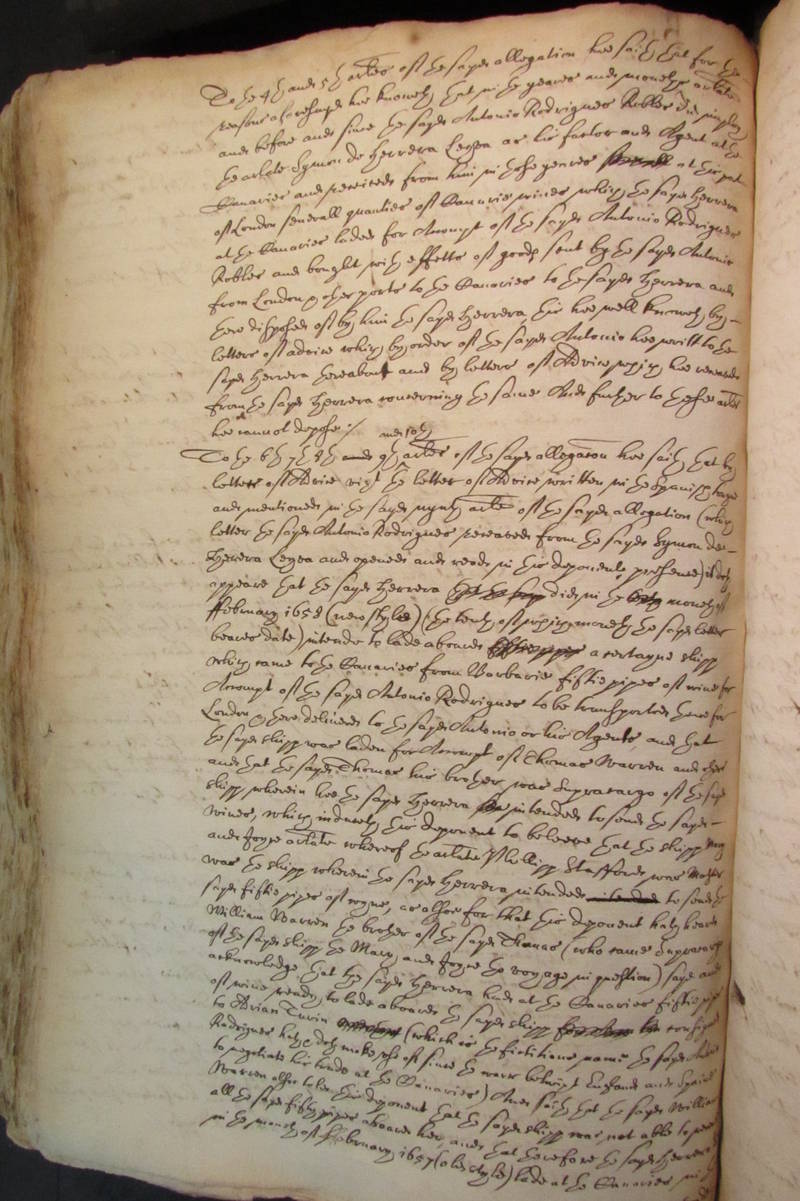 To the 4th and 5th articles of the sayd allegation hee saith that for the
reasons aforesayd hee knoweth that in the yeares and moneths articulate
and before and since the sayd Antonio Rodrigues Robles did imploy
the articulate Symon de Herrera Leyva as his factor and Agent at the
Canaries and received from him in those yeares at this port
of London severall quantities of Canarie wines which the sayd Herrera
at the Canaries laded for Accompt of the sayd Antonio Rodrigues
Robles and bought with effects of goods sent by the sayd Antonio
from London & other ports to the Canaries to the sayd Herrera and
there disposed of by him the sayd Herrera, this hee well knoweth by
letters of advice which by order of the sayd Antonio hee writt to the
sayd Herrera thereabout and by letters of Advice which hee received
from the sayd Herrera concerning the same And further to these articles
hee cannot depose:/
To the 6th 7th 8th 9th and 10th articles of the sayd allegation hee saith that by
letters of Advice vizt the letter of Advice written in the Spanish tongue
and mentioned in the sayd nynth article of the sayd allegation (which
letter the sayd Antonio Rodrigues received from the sayd Symon de
Herrera Leyva and opened and reade in this deponents presence) it doth
appeare that the sayd Herrera did in the moneth of
ffebruary 1658 (new style) (the tenth of which moneth the sayd letter
beares date) intende to lade aboard a certayne shipp
which came to the Canaries from Barbarie fiftie pipes of wine for
Accompt of the sayd Antonio Rodrigues to be transported there for
London & there delivered to the sayd Antonio or his Agents, and that
the sayd shipp was laden for Accompt of Thomas Warren and others
and that the sayd Thomas his brother was Supracargo of the sayd
shipp wherein hee the sayd Herrera intended to send the sayd
wines, which induceth this deponent to beleeve that the shipp Mary
and Joyce articulate whereof the articulate Phillipp Stafford was Master
was the shipp wherein the sayd Herrera intended to send the
sayd fiftie pipes of wyne, as alsoe for that this deponent hath heard
William Warren the brother of the sayd Thomas (who came Supracargo
of the sayd shipp the Mary and Joyce the voyage in question) saye and
acknowledge that the sayd Herrera had at the Canaries fiftie pipes
of wine ready to lade aboard the sayd shipp consigned
to Adrian Turin (which is the fictitious name the sayd Antonio
Rodrigues hath & doth make use of since the warr betwixt England and Spaine
to negotiate his trade at the Canaries) And saith that the sayd William
Warren alsoe told this deponent that the sayd shipp was not able to
all the sayd fifty pipes aboard her, and that therefore the sayd Herrera
in the moneth of ffebruary 1657 (old style) lade at the Canaries in